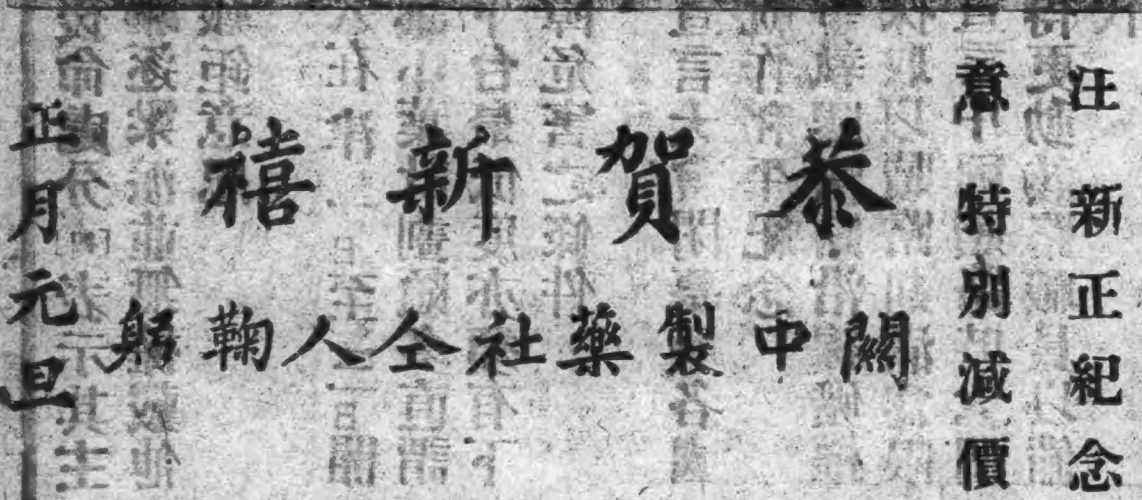 注新正紀念
意特別減價
恭賀新禧
關中製藥社仝人鞠躬
正月元旦